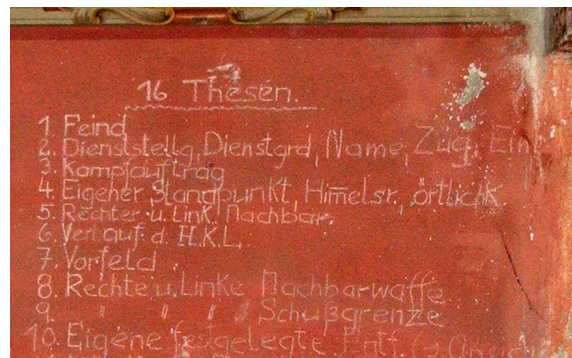 16 Thesen.
1 Feind
2. Dienststellg, Dienstgrd, Name, Zug, Einh
3. Kampfauftrag
4 Eigener Standpunkt, Himelsr., örtlichk
5. Rechter u. Link. Nachbar.
6. Verlauf d. H.K.L.
7. Vorfeld.
8. Rechte u. Linke Nachbarwaffe
9. " " " Schußgrenze
10. Eigene festgelegte Entf.